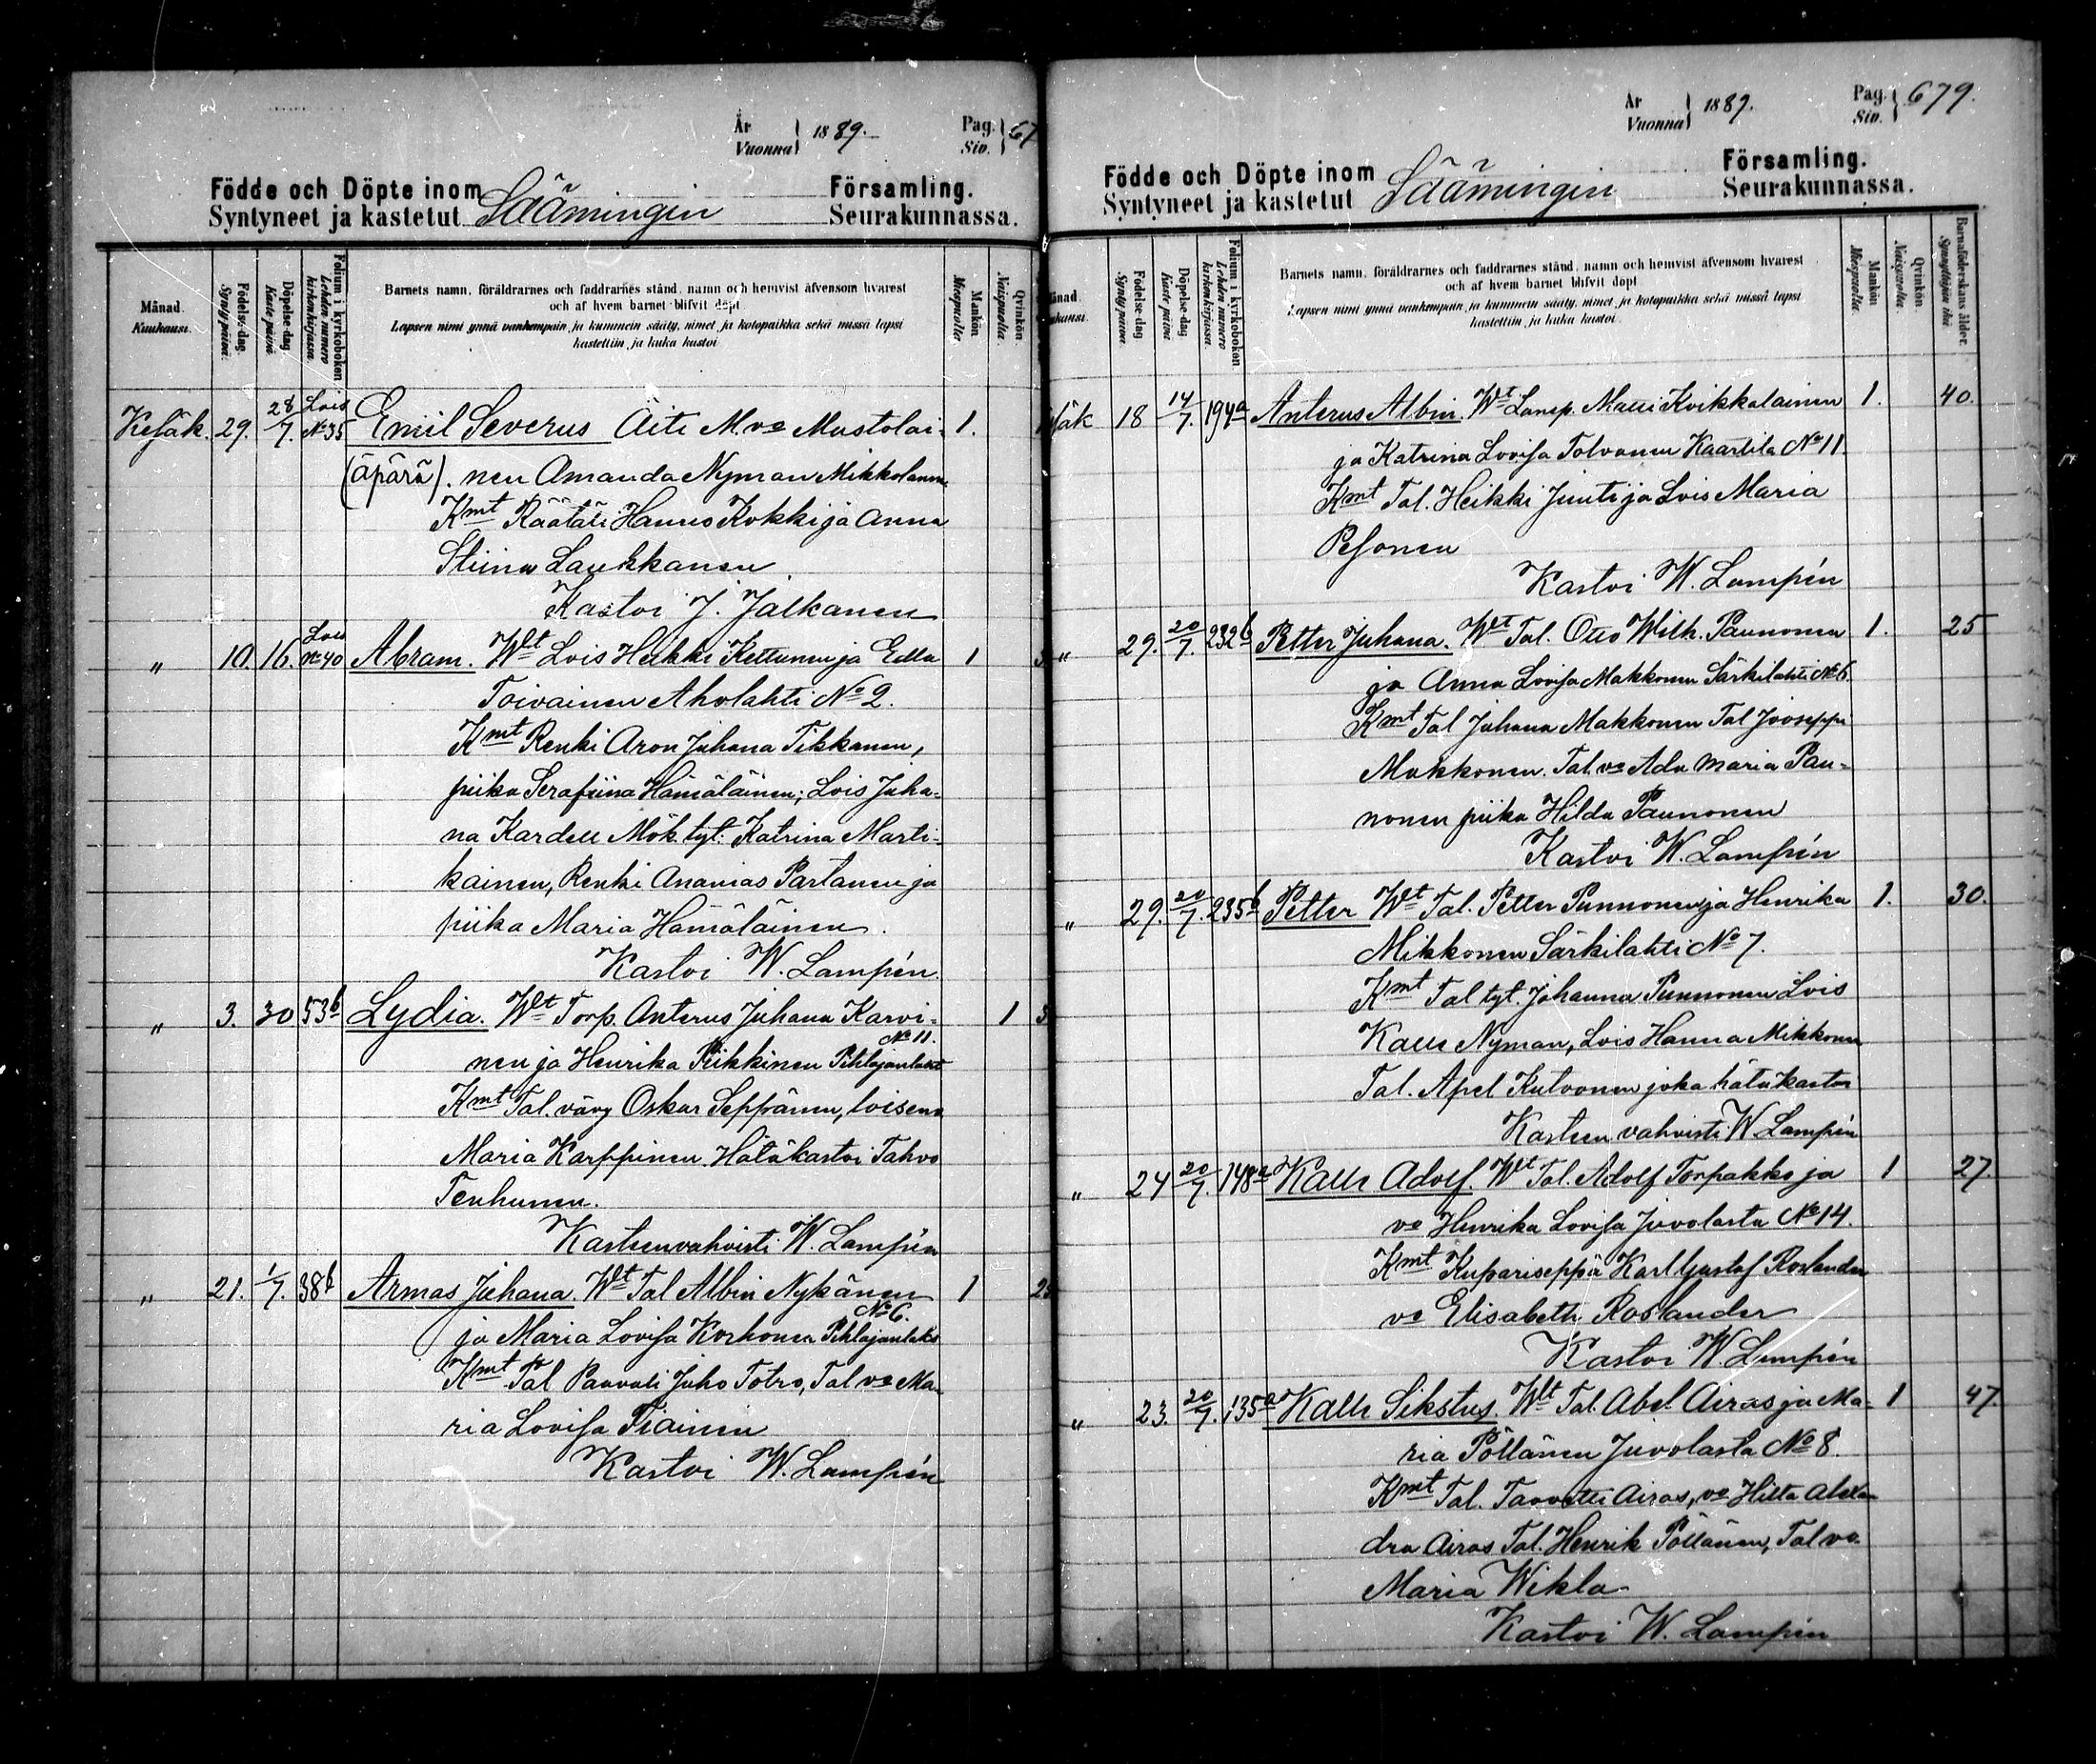 År
Vuonna } 1889.
Pag.
Siv. } 67
Födde och Döpte inom
Syntyneet ja kastetut Säämingin
Församling.
Seurakunnassa.
Månad.
Kuukausi.
Födelse-dag.
Synty päivä.
Döpelse-dag
Kaste päivä
Folium i kyrkoboken
Lehden numero
kirkon kirjassa.
Barnets namn, föräldrarnes och faddrarnes stånd, namn och hemvist äfvensom hvarest
och af hvem barnet blifvit döpt
Lapsen nimi ynnä vanhempain ja kummein sääty, nimet ja kotopaikka sekä missä lapsi
kastettiin ja kuka kastoi
Mankön
Miespuolta.
Qvinkön
Naispuolta.
Kesäk. 29. 28/7. Lois No 35 Emil Severus Äiti M.vo Mustolai- 1.
(äpärä). nen Amanda Nyman Mikkolanm.
Kmt Räätäli Hannes Kokki ja Anna
Stiina Laukkanen
Kastoi J. Jalkanen
" 10. 16. Lois No 40 Abram. Wlt Lois Heikki Kettunen ja Edla 1 3
Toivainen Aholahti No 2.
Kmt Renki Aron Juhana Tikkanen,
piika Serafiina Hämäläinen; Lois Juha-
na Kardell Mök. tyt. Katrina Marti-
kainen, Renki Ananias Partanen ja
piika Maria Hämäläinen.
Kastoi W. Lampén.
" 3. 30 53b Lydia. Wlt Torp. Anterus Juhana Karvi- 1 3
No 11.
nen ja Henrika Piikkinen Pihlajanlaks
Kmt Tal. vävy Oskar Seppänen, loisen
Maria Karppinen. Hätäkastoi Tahvo
Tenhunen.
Kasteen vahvisti W. Lampén
" 21. 1/7. 38b Armas Juhana. Wlt Tal Albin Nykänen 1 2
No 6.
ja Maria Lovisa Korhonen Pihlajanlaks
Kmt Tal Paavali Juho Totro, Tal vo Ma-
ria Lovisa Tiainen
Kastoi W. Lampén
År
Vuonna } 1889.
Pag.
Siv. } 679.
Födde och Döpte inom
Syntyneet ja kastetut Säämingin
Församling.
Seurakunnassa.
Månad.
Kuukausi.
Födelse-dag
Synty päivä
Döpelse-dag
Kaste päivä
Folium i kyrkoboken
Lehden numero
kirkon kirjassa.
Barnets namn, föräldrarnes och faddrarnes stånd, namn och hemvist äfvensom hvarest
och af hvem barnet blifvit döpt
Lapsen nimi ynnä vanhempain ja kummein sääty, nimet ja kotopaikka sekä missä lapsi
kastettiin ja kuka kastoi.
Mankön
Miespuolta.
Qvinkön
Naispuolta.
Barnaföderskans ålder.
Synnyttäjän ikä
säk 18 14/7. 194a Anterus Albin. Wlt Lamp. Matti Kvikkalainen 1. 40.
ja Katrina Lovisa Tolvanen Kaartila No 11.
Kmt Tal. Heikki Juuti ja Lois Maria
Pesonen
Kastoi W. Lampén
" 29. 20/7. 232b Petter Juhana. Wlt Tal. Otto Wilh. Paunonen 1. 25
ja Anna Lovisa Makkonen Särkilahti No 6.
Kmt Tal Juhana Makkonen Tal Jooseppi
Makkonen. Tal. vo Ada Maria Pau-
nonen piika Hilda Paunonen
Kastoi W. Lampén
" 29. 20/7. 235b Petter Wlt Tal. Petter Punnonen ja Henrika 1. 30.
Mikkonen Särkilahti No 7.
Kmt Tal tyt. Johanna Punnonen Lois
Kalle Nyman, Lois Hanna Mikkonen
Tal. Apel Kutvonen joka hätäkastoi
Kasteen vahvisti W Lampén
" 24 20/7. 148a Kalle Adolf. Wlt Tal. Adolf Torpakko ja 1 27.
vo Henrika Lovisa Juvolasta No 14.
Kmt Kupariseppä Karl Gustaf Roslander
vo Elisabeth Roslander
Kastoi W. Lampén
" 23. 20/7. 135a Kalle Sikstus. Wlt Tal. Abel Airas ja Ma- 1 47.
ria Pöllänen Juvolasta No 8.
Kmt Tal. Taavetti Airas, vo Hilta Alexan
dra Airas Tal. Henrik Pöllänen, Tal vo.
Maria Wikla
Kastoi W. Lampén